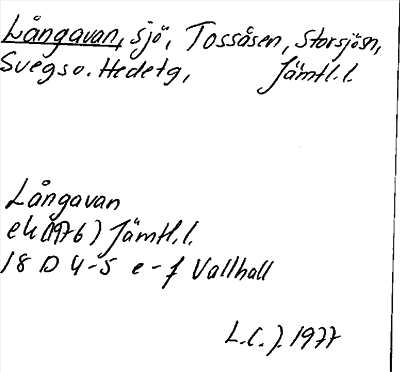 Långavan, sjö, Tossåsen, Storsjön,
Svegs o. Hedetg, Jämtl.l.
Långavan
ek (1976) Jämtl.l.
18 D 4-5 e-f Vallhall
L.C.J. 1977